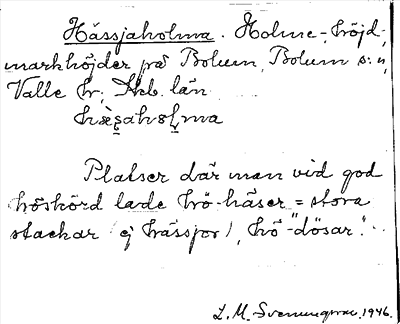 Hässjaholma. Holme-, höjd-,
markhöjder på Bolum, Bolum s:n,
Valle hr; Skb. län
hæs̯ahoḷma
Platser där man vid god
höskörd lade hö-häser = stora
stackar (ej hässjor), hö-"dösar".
L. M. Svenungsson, 1946.